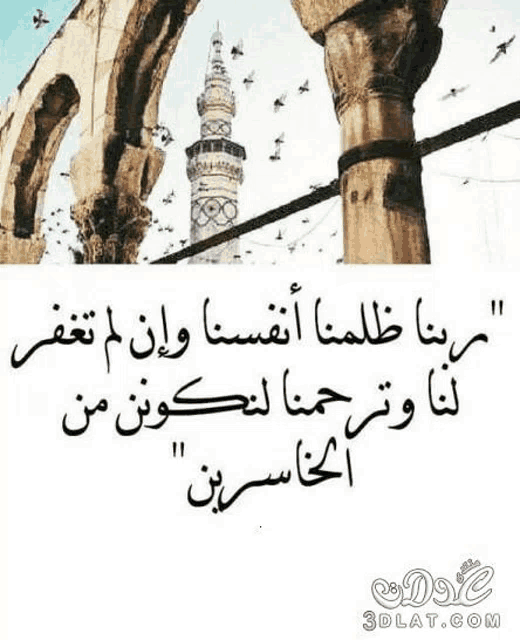 "ربنا ظلمنا أنفسنا وإن لم تغفر
لنا وترحمنا لنكونن من
الخاسرين"
منتدى
عدلات
3DLAT.COM